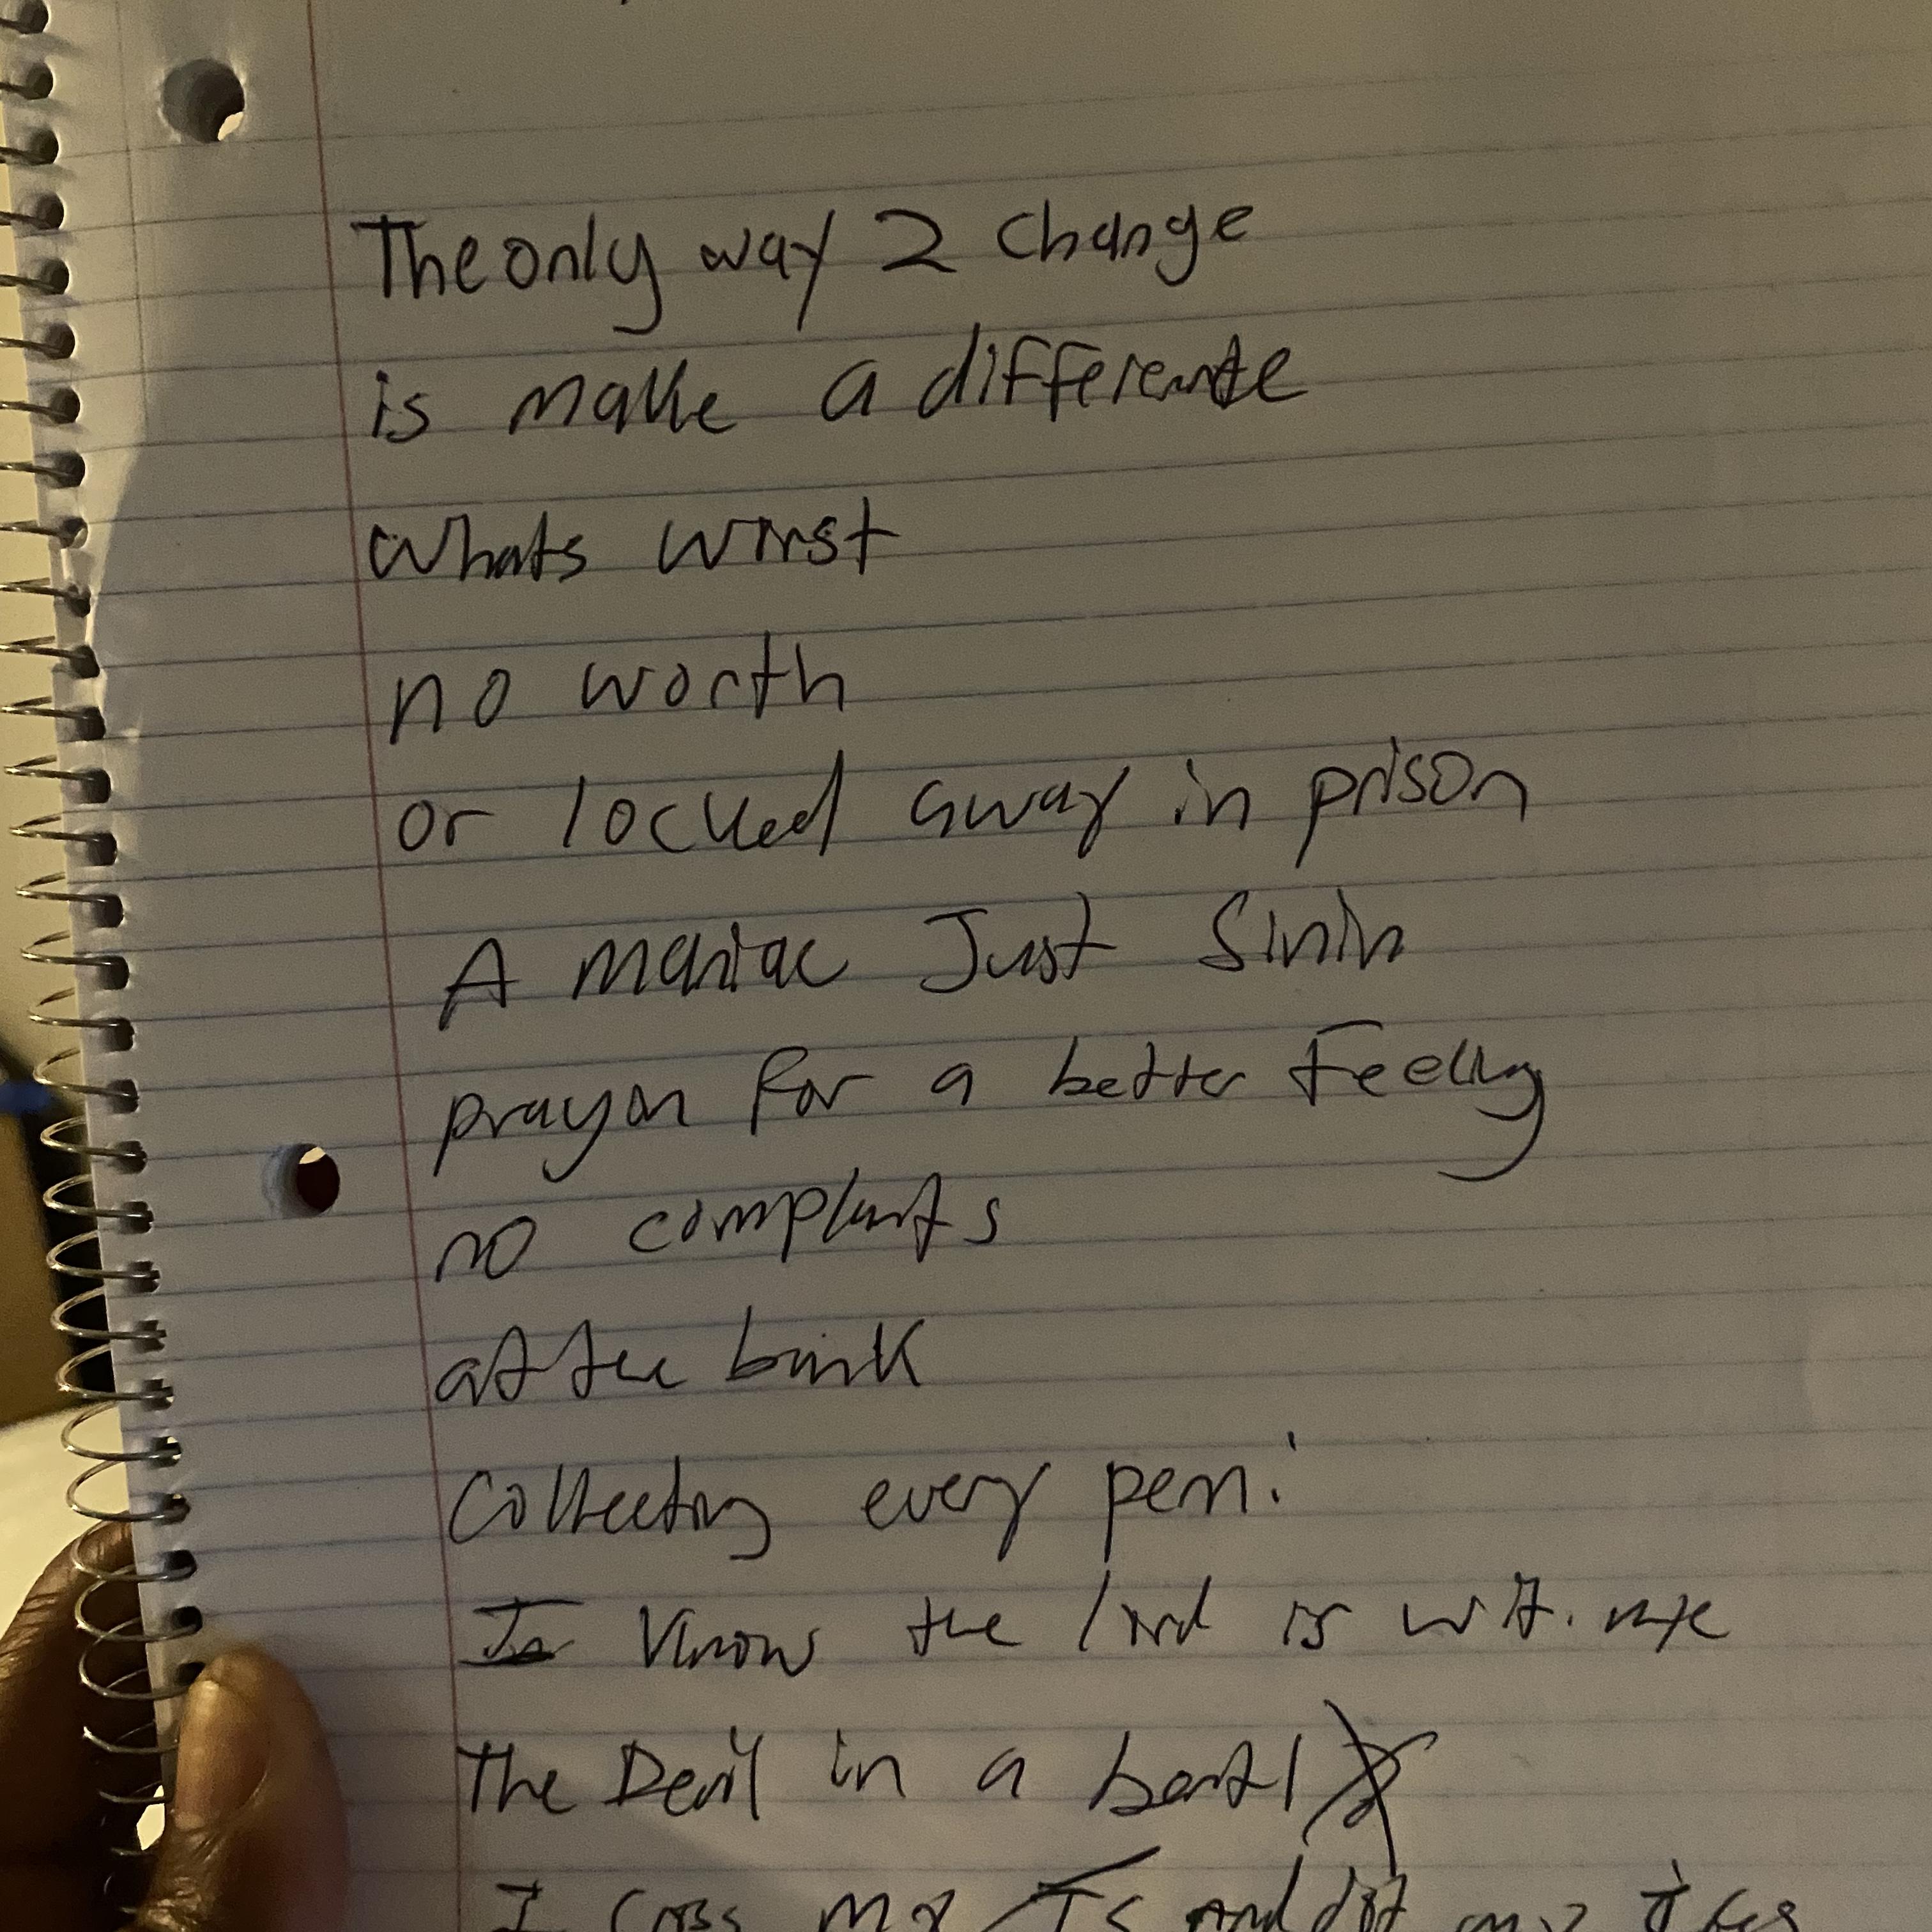 The only way 2 change
is make a difference
Whats worst
no worth
or locked away in prison
A maniac Just Sinin
prayn for a better Feeling
no complaints
at the bank
Collecting every penni
I know the lord is wit. me
The Devil in a
I Cross my Ts and dot my